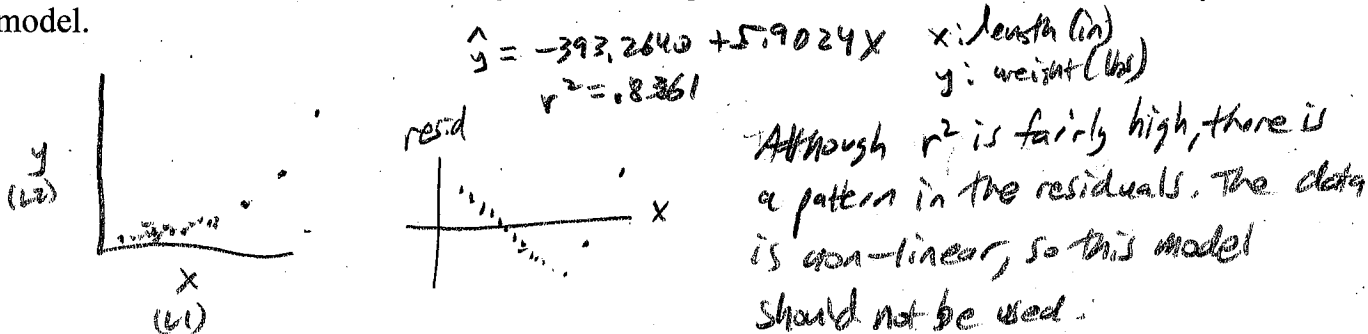 model.
ŷ = -393.2640 + 5.9024x x: length (in)
r² = .8361 y: weight (lbs)
y
(L2)
x
(L1)
resid
x
Although r² is fairly high, there is
a pattern in the residuals. The data
is non-linear, so this model
should not be used.